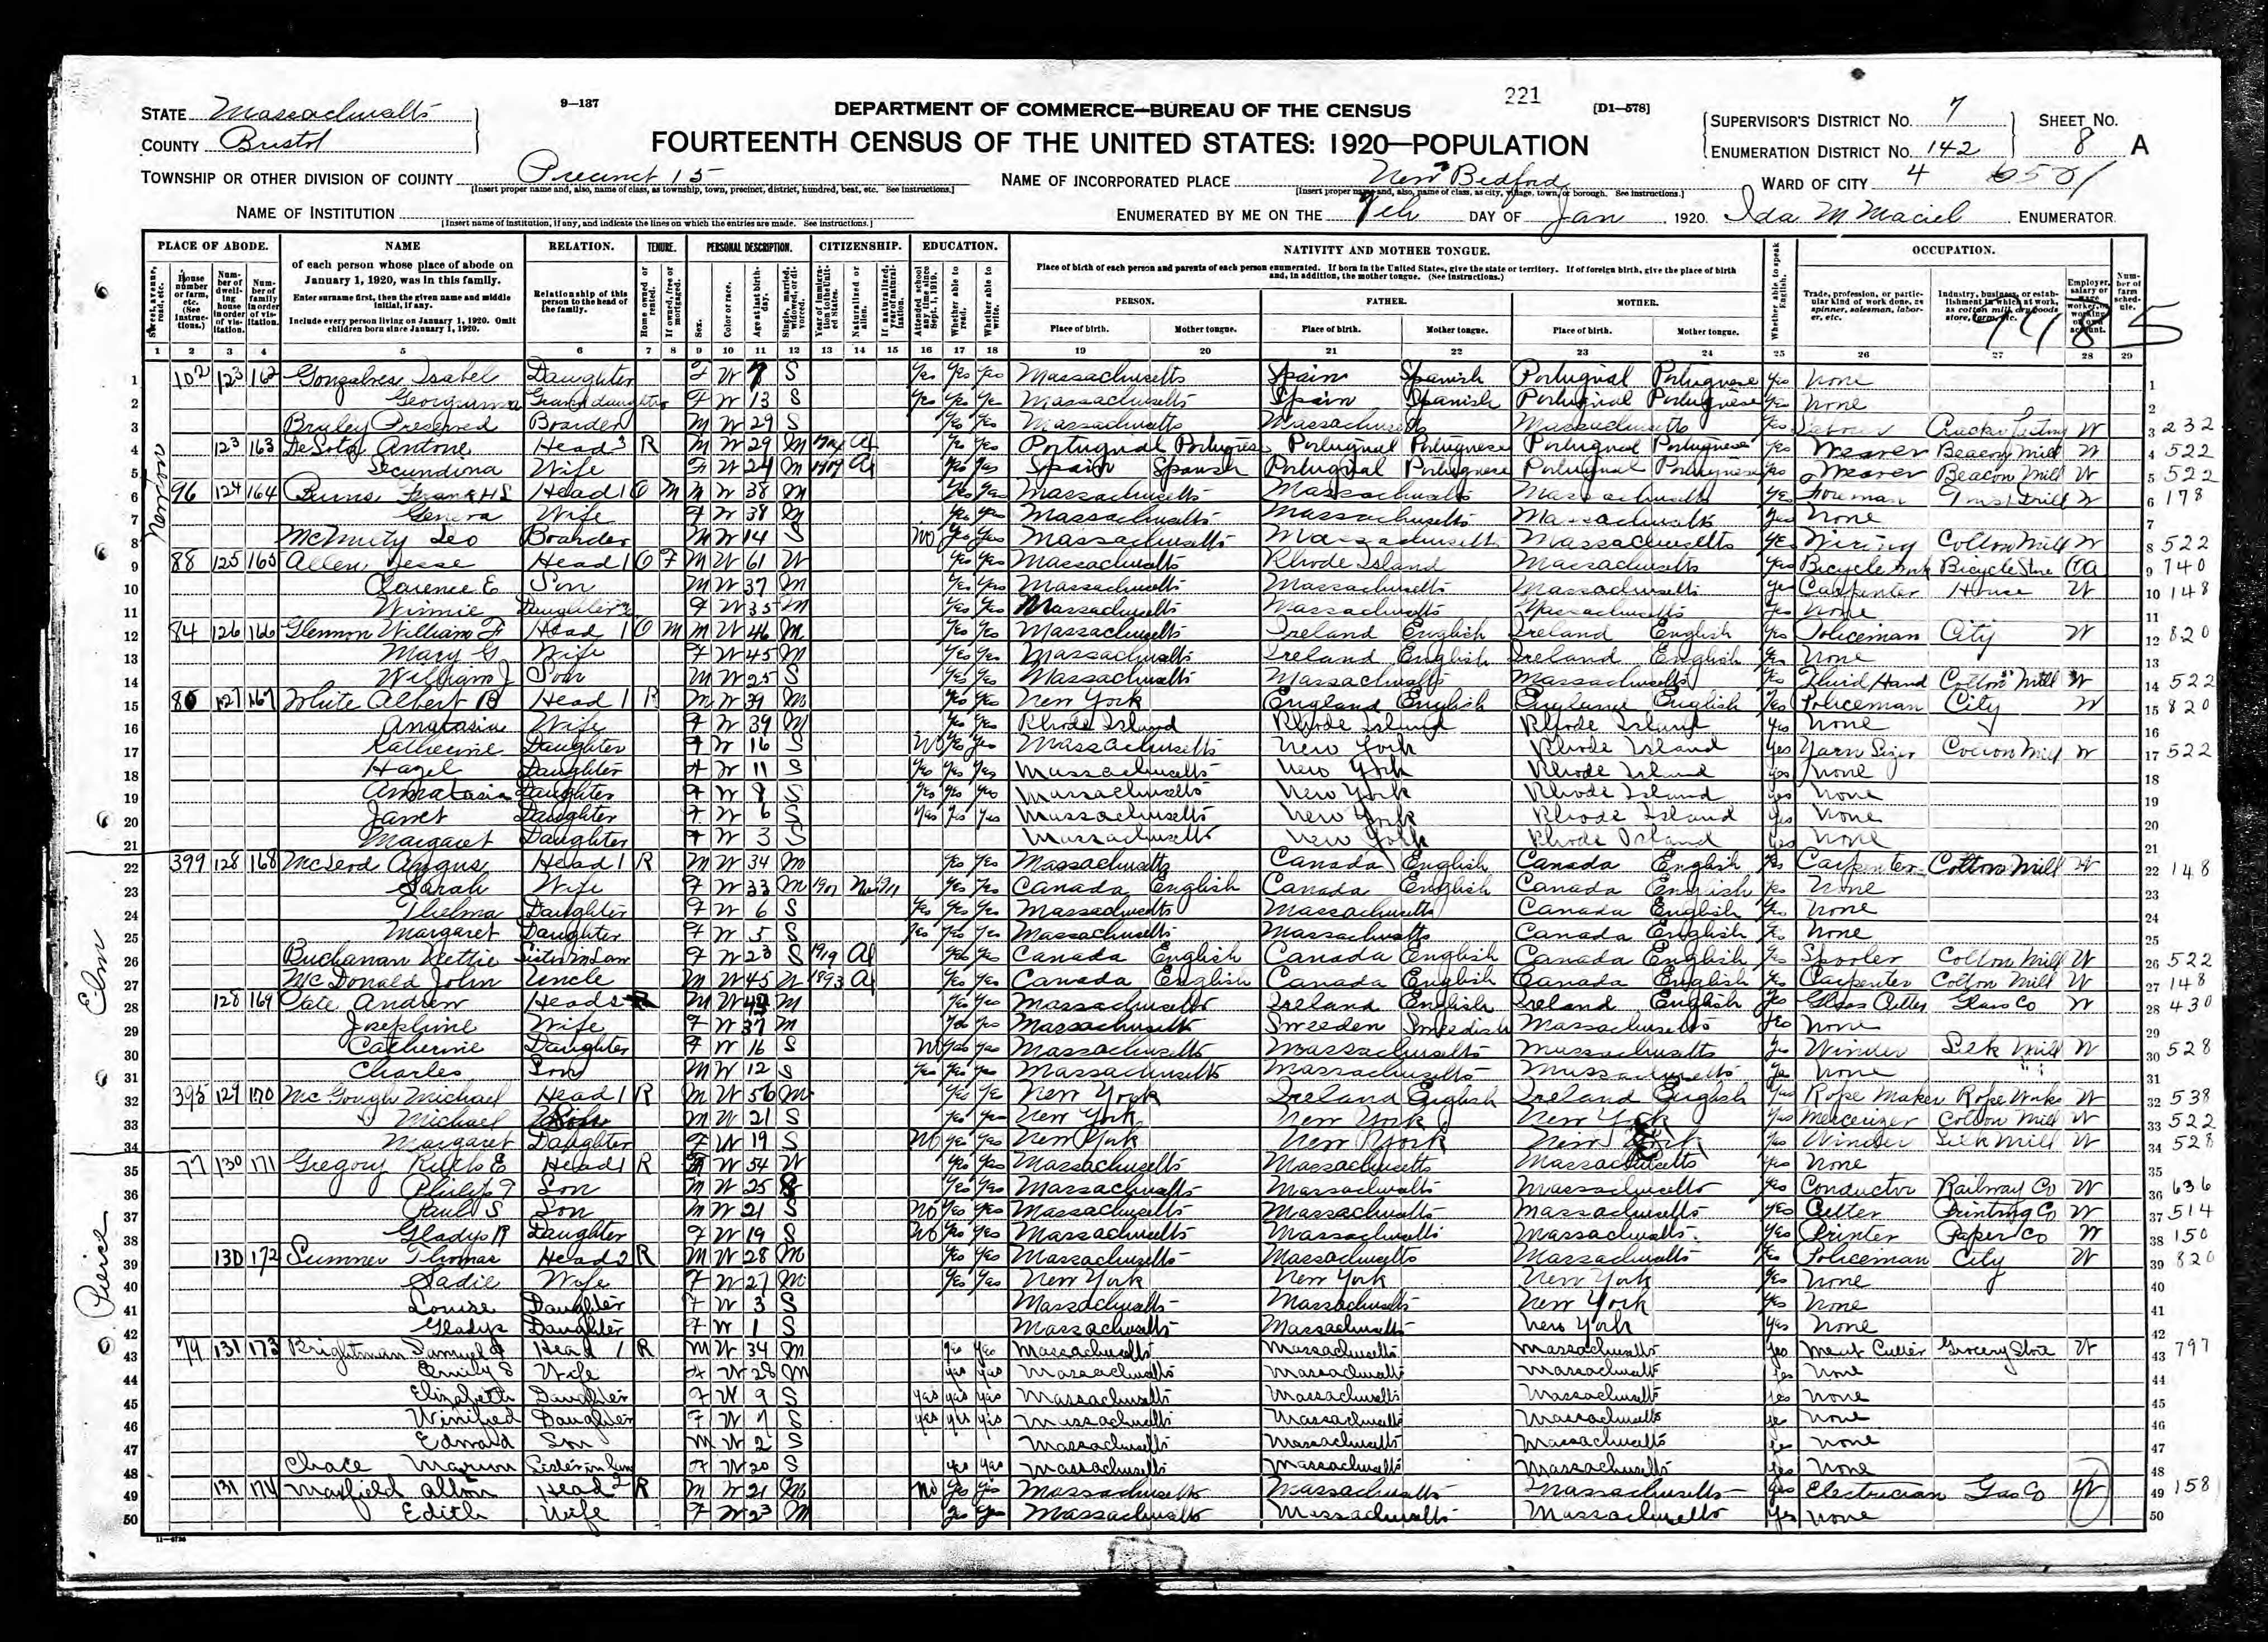 221
9—137
[D1—578]
STATE Massachusetts
COUNTY Bristol
DEPARTMENT OF COMMERCE—BUREAU OF THE CENSUS
FOURTEENTH CENSUS OF THE UNITED STATES: 1920—POPULATION
SUPERVISOR'S DISTRICT No. 7 SHEET No.
ENUMERATION DISTRICT No. 142 8 A
TOWNSHIP OR OTHER DIVISION OF COUNTY Precinct 15 NAME OF INCORPORATED PLACE New Bedford WARD OF CITY 4
[Insert proper name and, also, name of class, as township, town, precinct, district, hundred, beat, etc. See instructions.] [Insert proper name and, also, name of class, as city, village, town, or borough. See instructions.]
NAME OF INSTITUTION
[Insert name of institution, if any, and indicate the lines on which the entries are made. See instructions.]
ENUMERATED BY ME ON THE 7th DAY OF Jan 1920. Ida M Maciel ENUMERATOR
PLACE OF ABODE. NAME RELATION. TENURE. PERSONAL DESCRIPTION. CITIZENSHIP. EDUCATION. NATIVITY AND MOTHER TONGUE. OCCUPATION.
of each person whose place of abode on January 1, 1920, was in this family.
Enter surname first, then the given name and middle initial, if any.
Include every person living on January 1, 1920. Omit children born since January 1, 1920.
Relationship of this person to the head of the family.
Place of birth of each person and parents of each person enumerated. If born in the United States, give the state or territory. If of foreign birth, give the place of birth and, in addition, the mother tongue. (See instructions.)
PERSON. FATHER. MOTHER.
Place of birth. Mother tongue. Place of birth. Mother tongue. Place of birth. Mother tongue.
1 2 3 4 5 6 7 8 9 10 11 12 13 14 15 16 17 18 19 20 21 22 23 24 25 26 27 28 29
1 102 123 162 Gonsalves Isabel Daughter F W 7 S Yes Yes Yes Massachusetts Spain Spanish Portugual Portuguese Yes None
2 Georgianna Grand daughter F W 13 S Yes Yes Yes Massachusetts Spain Spanish Portugual Portuguese Yes None
3 Braley Preserved Boarder M W 29 S Yes Yes Massachusetts Massachusetts Massachusetts Yes W 232
4 123 163 DeSota Antone Head 3 R M W 29 M Al Yes Yes Portugual Portuguese Portugual Portuguese Portugual Portuguese Yes Weaver Beacon Mill W 522
5 Secundina Wife F W 24 M 1909 Al Yes Yes Spain Spanish Portugual Portuguese Portugual Portuguese Yes Weaver Beacon Mill W 522
6 96 124 164 Head 1 O M M W 38 M Yes Yes Massachusetts Massachusetts Massachusetts Yes Foreman W 178
7 Geneva Wife F W 38 M Yes Yes Massachusetts Massachusetts Massachusetts Yes None
8 Leo Boarder M W 14 S No Yes Yes Massachusetts Massachusetts Massachusetts Yes Cotton Mill W 522
9 88 125 165 Allen Jesse Head 1 O F M W 61 W Yes Yes Massachusetts Rhode Island Massachusetts Yes Bicycle Bicycle Store OA 740
10 Clarence E Son M W 37 M Yes Yes Massachusetts Massachusetts Massachusetts Yes Carpenter House W 148
11 Winnie Daughter F W 35 M Yes Yes Massachusetts Massachusetts Massachusetts Yes None
12 84 126 166 Glennon William F Head 1 O M M W 46 M Yes Yes Massachusetts Ireland English Ireland English Yes Policeman City W 820
13 Mary G Wife F W 45 M Yes Yes Massachusetts Ireland English Ireland English Yes None
14 William J Son M W 25 S Yes Yes Massachusetts Massachusetts Massachusetts Yes Cotton Mill W 522
15 80 127 167 White Albert B Head 1 R M W 39 M Yes Yes New York England English England English Yes Policeman City W 820
16 Anatasia Wife F W 39 M Yes Yes Rhode Island Rhode Island Rhode Island Yes None
17 Katherine Daughter F W 16 S No Yes Yes Massachusetts New York Rhode Island Yes Cotton Mill W 522
18 Hazel Daughter F W 11 S Yes Yes Yes Massachusetts New York Rhode Island Yes None
19 Daughter F W 9 S Yes Yes Yes Massachusetts New York Rhode Island Yes None
20 Janet Daughter F W 6 S Yes Yes Yes Massachusetts New York Rhode Island Yes None
21 Margaret Daughter F W 3 S Massachusetts New York Rhode Island Yes None
22 399 128 168 McLeod Angus Head 1 R M W 34 M Yes Yes Massachusetts Canada English Canada English Yes Carpenter Cotton Mill W 148
23 Sarah Wife F W 33 M 1901 Na 1911 Yes Yes Canada English Canada English Canada English Yes None
24 Thelma Daughter F W 6 S Yes Yes Yes Massachusetts Massachusetts Canada English Yes None
25 Margaret Daughter F W 5 S Yes Yes Yes Massachusetts Massachusetts Canada English Yes None
26 Buchanan Nettie Sister in Law F W 23 S 1919 Al Yes Yes Canada English Canada English Canada English Yes Spooler Cotton Mill W 522
27 McDonald John Uncle M W 45 1893 Al Yes Yes Canada English Canada English Canada English Yes Carpenter Cotton Mill W 148
28 128 169 Andrew Head 2 R M W 42 M Yes Yes Massachusetts Ireland English Ireland English Yes Glass Cutter Glass Co W 430
29 Josephine Wife F W 37 M Yes Yes Massachusetts Sweeden Sweedish Massachusetts Yes None
30 Catherine Daughter F W 16 S No Yes Yes Massachusetts Massachusetts Massachusetts Yes Winder Silk Mill W 528
31 Charles Son M W 12 S Yes Yes Yes Massachusetts Massachusetts Massachusetts Yes None
32 395 129 170 McGough Michael Head 1 R M W 56 M Yes Yes New York Ireland English Ireland English Yes Rope Maker Rope Works W 538
33 Michael Son M W 21 S Yes Yes New York New York New York Yes Mercerizer Cotton Mill W 522
34 Margaret Daughter F W 19 S No Yes Yes New York New York New York Yes Winder Silk Mill W 528
35 77 130 171 Gregory E Head 1 R F W 54 W Yes Yes Massachusetts Massachusetts Massachusetts Yes None
36 Philip Son M W 25 S Yes Yes Massachusetts Massachusetts Massachusetts Yes Conductor Railway Co W 636
37 Paul S Son M W 21 S No Yes Yes Massachusetts Massachusetts Massachusetts Yes Cutter Printing Co W 514
38 Gladys R Daughter F W 19 S No Yes Yes Massachusetts Massachusetts Massachusetts Yes Printer Paper Co W 150
39 130 172 Sumner Thomas Head 2 R M W 28 M Yes Yes Massachusetts Massachusetts Massachusetts Yes Policeman City W 820
40 Sadie Wife F W 27 M Yes Yes New York New York New York Yes None
41 Louise Daughter F W 3 S Massachusetts Massachusetts New York Yes None
42 Gladys Daughter F W 1 S Massachusetts Massachusetts New York Yes None
43 79 131 173 Brightman Samuel Head 1 R M W 34 M Yes Yes Massachusetts Massachusetts Massachusetts Yes Meat Cutter Grocery Store W 797
44 Emily S Wife F W 28 M Yes Yes Massachusetts Massachusetts Massachusetts Yes None
45 Elizabeth Daughter F W 9 S Yes Yes Yes Massachusetts Massachusetts Massachusetts Yes None
46 Winifred Daughter F W 7 S Yes Yes Yes Massachusetts Massachusetts Massachusetts Yes None
47 Edward Son M W 2 S Massachusetts Massachusetts Massachusetts Yes None
48 Chace Marion Sister in law F W 20 S Yes Yes Massachusetts Massachusetts Massachusetts Yes None
49 131 174 Maxfield Alton Head 2 R M W 21 M No Yes Yes Massachusetts Massachusetts Massachusetts Yes Electrician Gas Co W 158
50 Edith Wife F W 23 M Yes Yes Massachusetts Massachusetts Massachusetts Yes None
Newton
Elm
Pierce